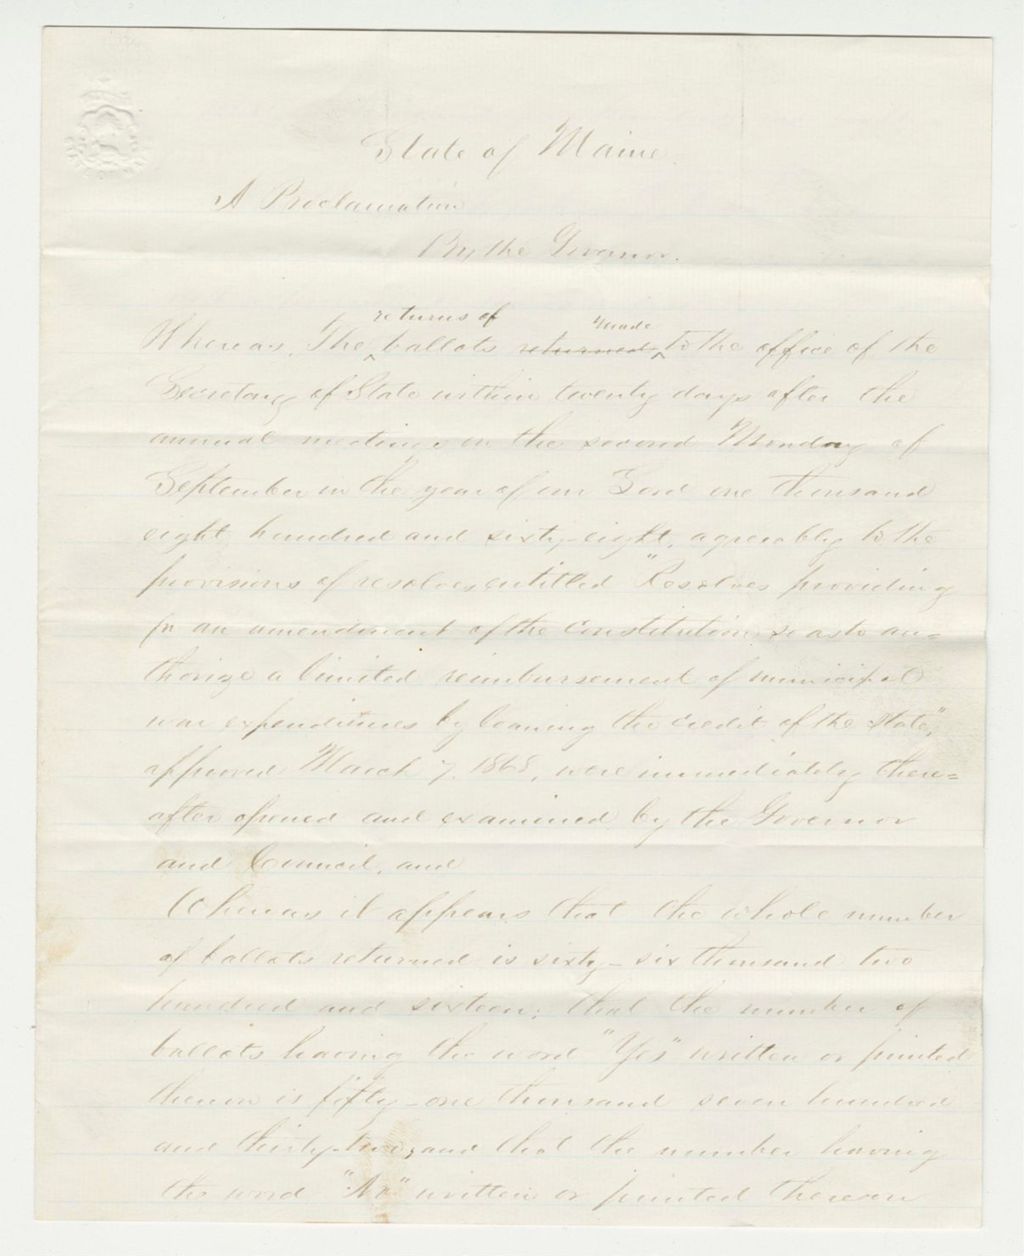 State of Maine.
A Proclamation
By the Governor.
returns of made
Whereas, The ballots returned to the office of the
Secretary of State within twenty days after the
annual meetings on the second Monday of
September in the year of our Lord one thousand
eight hundred and sixty-eight, agreeably to the
provisions of resolves entitled "Resolves providing
for an amendment of the Constitution, so as to au=
thorize a limited reimbursement of municipal
war expenditures by loaning the credit of the State",
approved March 7, 1868, were immediately there=
after opened and examined by the Governor
and Council, and
Whereas it appears that the whole number
of ballots returned is sixty-six thousand two
hundred and sixteen; that the number of
ballots having the word "Yes" written or printed
thereon is fifty-one thousand seven hundred
and thirty-two; and that the number having
the word "No" written or printed thereon